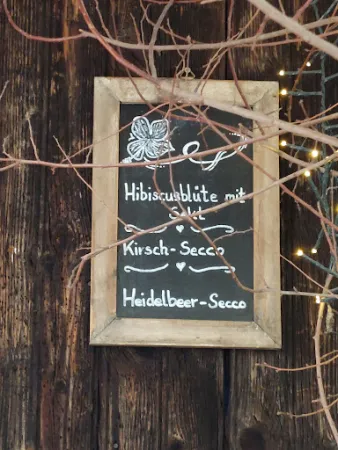 Hibiscusblüte mit
Sekt
Kirsch-Secco
Heidelbeer-Secco